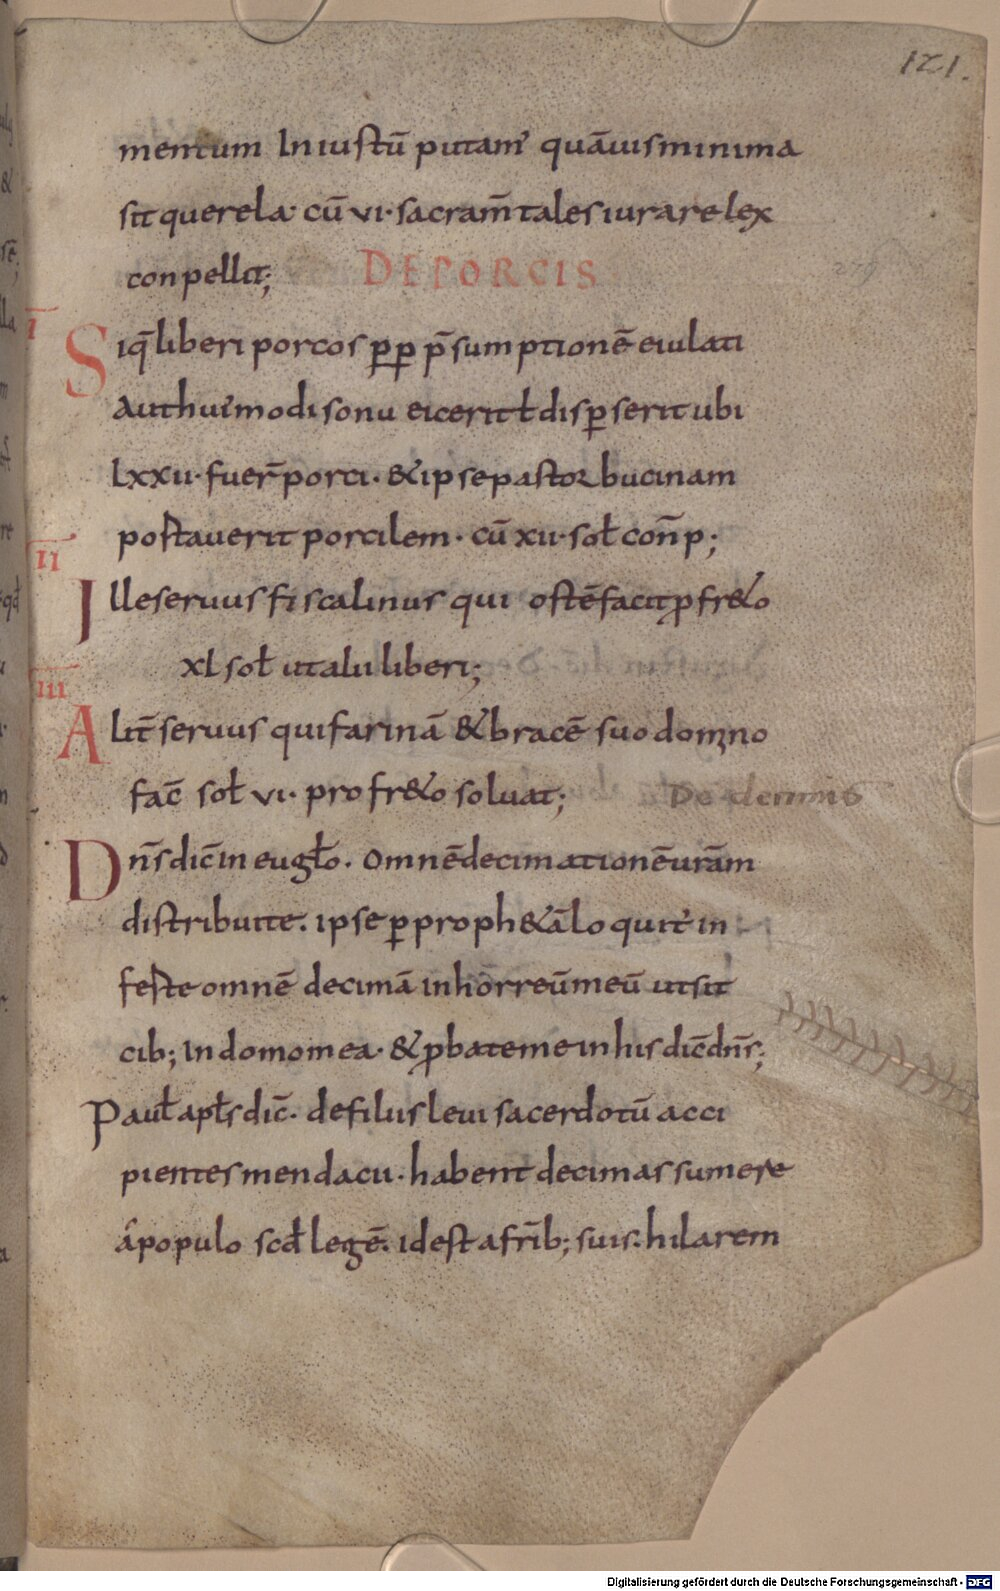 121.
mentum Iniustū putam' quāuis minima
sit querela· cū vi· sacram̄tales iurare lex
conpellit;
DE PORCIS
ī
Siq̄ liberi porcos ꝑꝑ p̄sumptionē eiulati
aut hui'modi sonu eicerit ł disꝑserit ubi
lxxii· fuer̄ porci· & ipse pastor bucinam
postaverit porcilem· cū xii· soł con̄p;
īī
Ille servus fiscalinus qui ostē facit ꝓ fr&o
xl soł ut alii liberi;
īīī
Alit̄ servus qui farinā & bracē suo domno
fac̄ soł vi· pro fr&o soluat;
De decimis
Dn̄s dic̄ in eugło· Omnē decimationē urām
distribuite· ipse ꝑ proph&ā loquit' in
feste omnē decimā in horreū meū ut sit
cib; In domo mea· & ꝓbate me in his dic̄ dn̄s;
Pauł apłs dic̄· de filiis levi sacerdotū acci
pientes mendacii· habent decimas sumere
á populo scđ legē· id est a fr̄ib; suis· hilarem
Digitalisierung gefördert durch die Deutsche Forschungsgemeinschaft - DFG